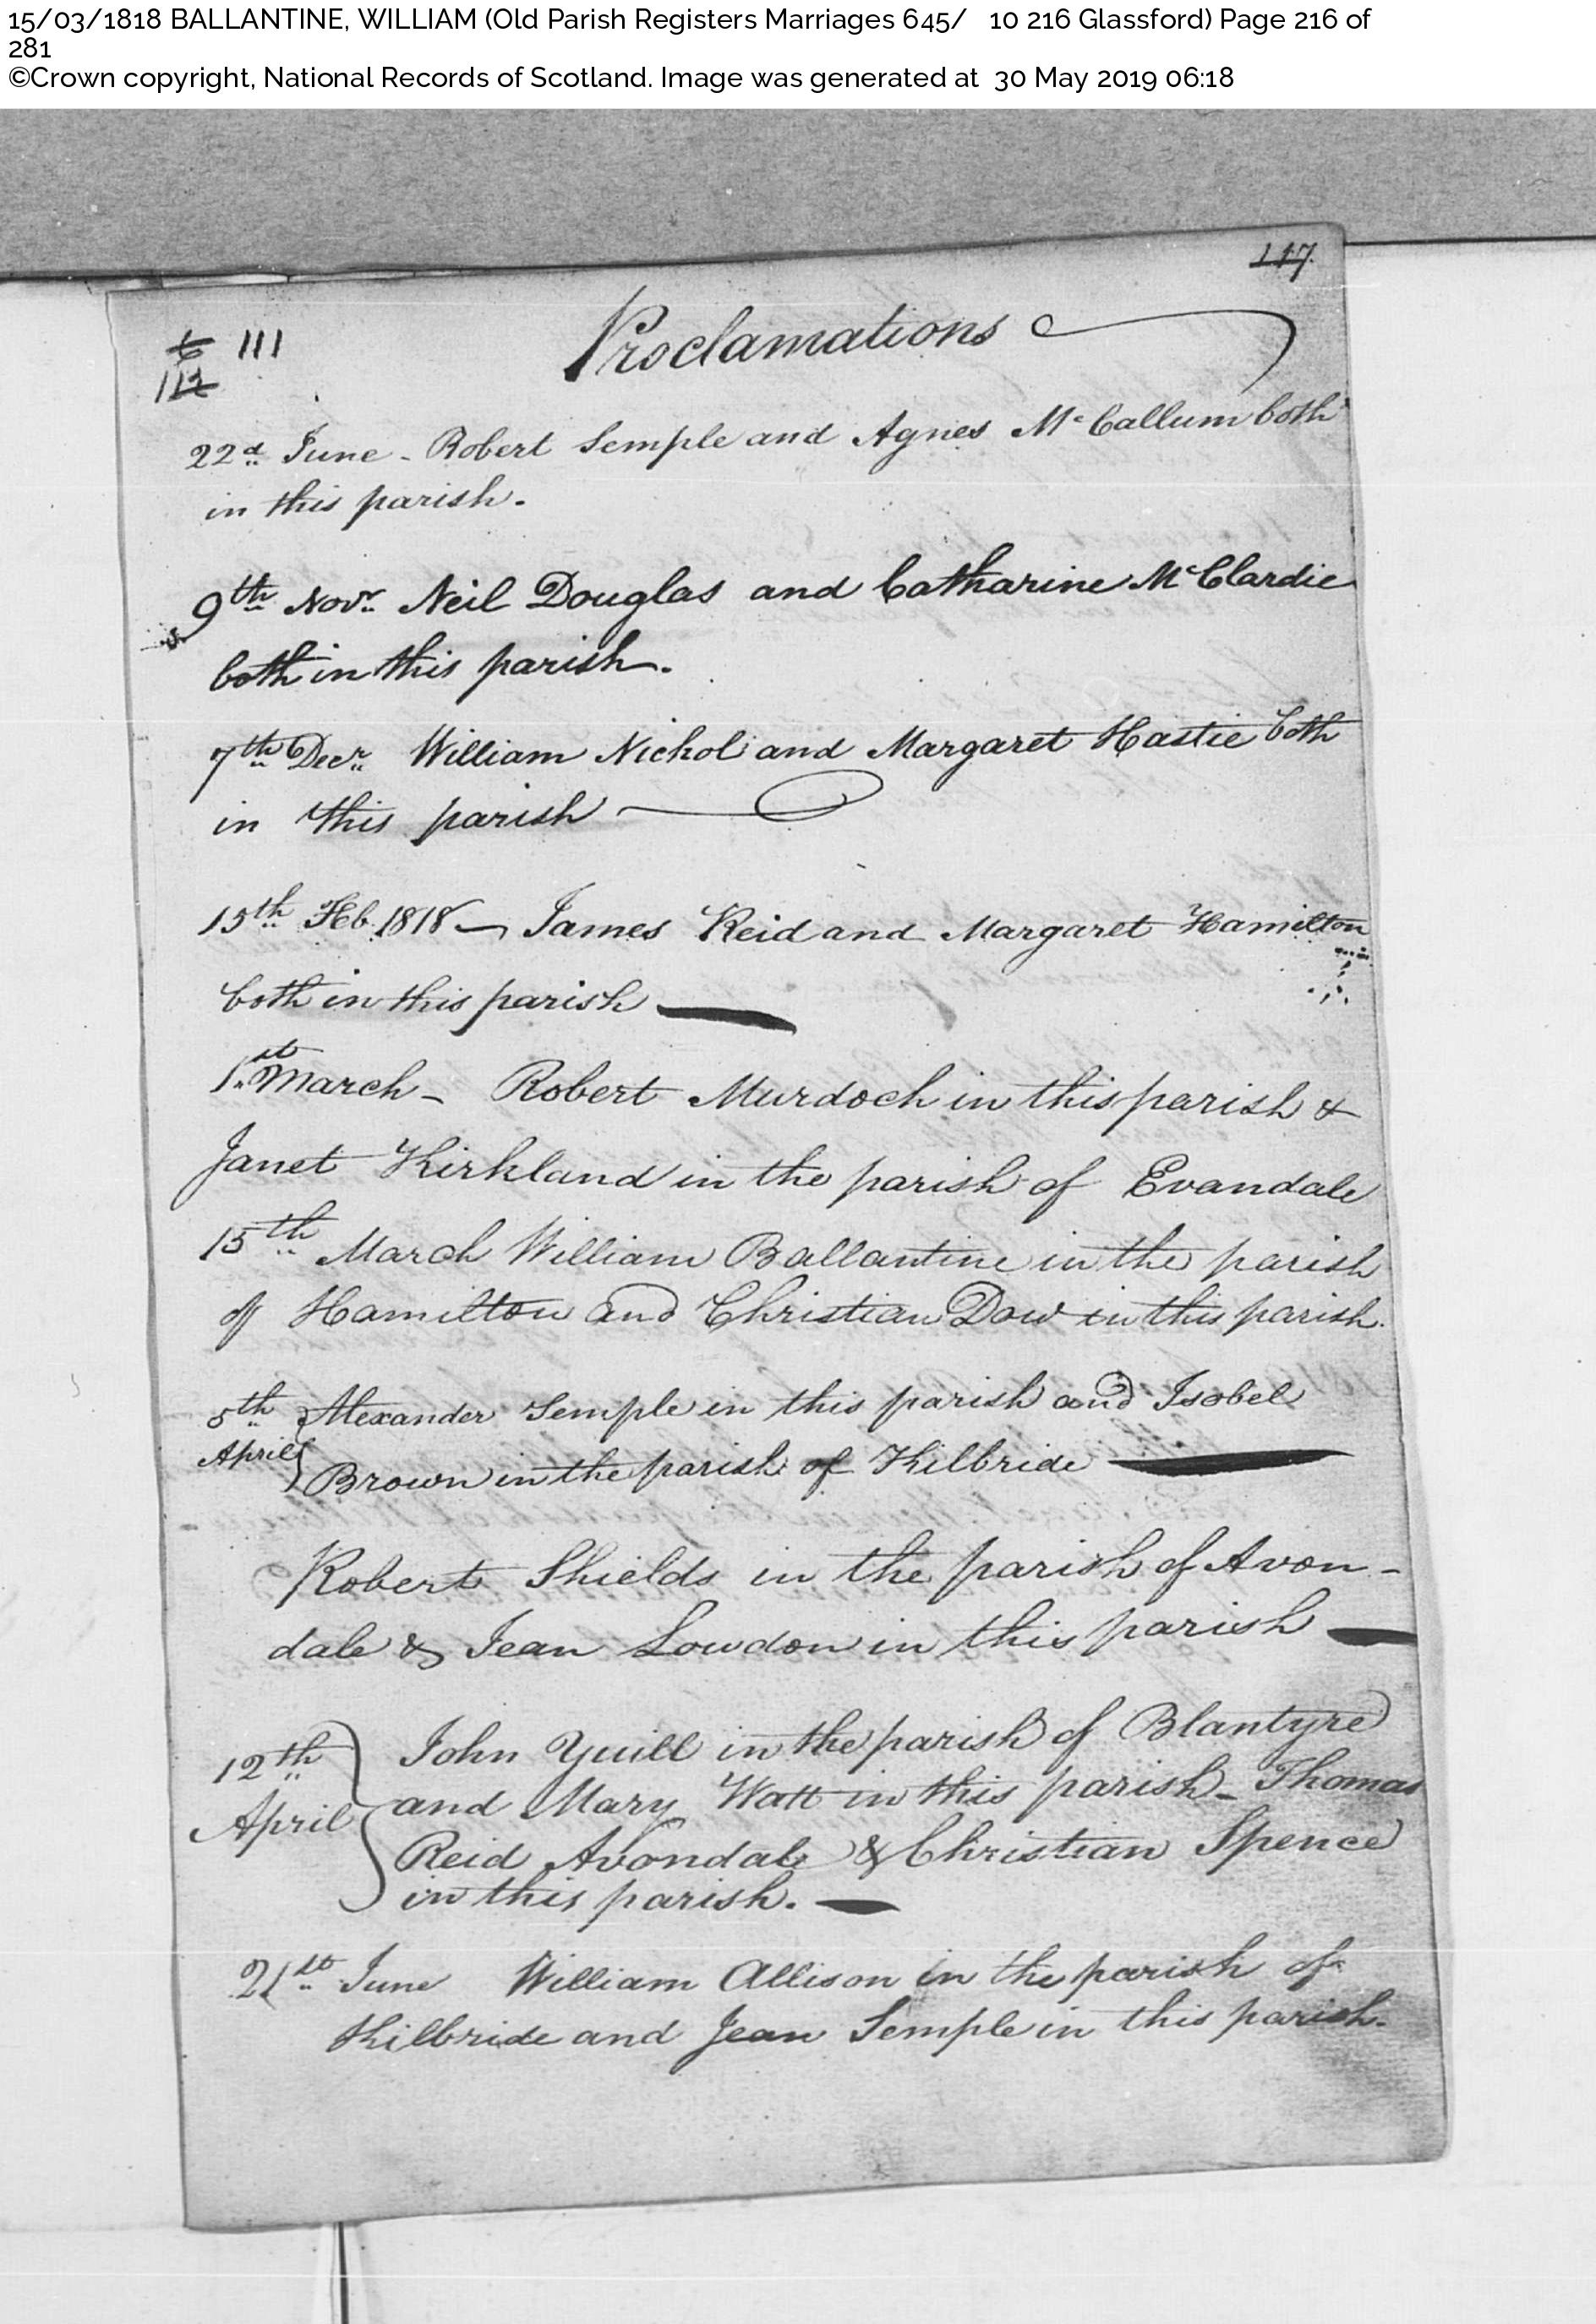 15/03/1818 BALLANTINE, WILLIAM (Old Parish Registers Marriages 645/ 10 216 Glassford) Page 216 of
281
©Crown copyright, National Records of Scotland. Image was generated at 30 May 2019 06:18
117.
6 111
112
Proclamations
22d June - Robert Semple and Agnes McCallum both
in this parish.
9th Novr Neil Douglas and Catharine McClardie
both in this parish.
7th Decr William Nichol and Margaret Hastie both
in this parish
15th Feb. 1818 - James Reid and Margaret Hamilton
both in this parish
1st March - Robert Murdoch in this parish &
Janet Kirkland in the parish of Evandale
15th March William Ballantine in the parish
of Hamilton and Christian Dow in this parish.
5th Alexander Semple in this parish and Isobel
April Brown in the parish of Kilbride
Robert Shields in the parish of Avon-
dale & Jean Lowdon in this parish
12th John Yuill in the parish of Blantyre
April and Mary Watt in this parish - Thomas
Reid Avondale & Christian Spence
in this parish.
21st June William Allison in the parish of
Kilbride and Jean Semple in this parish.